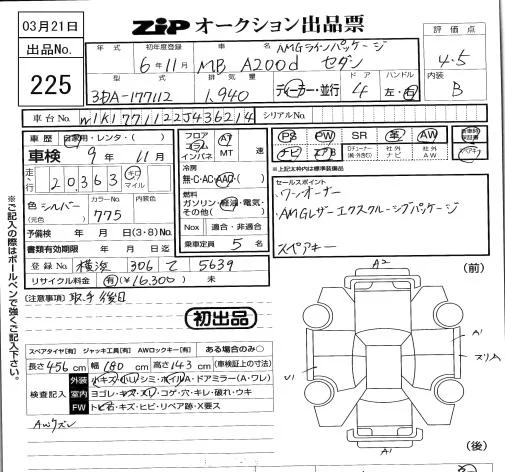 03月21日
ZIP オークション出品票
出品No.
225
年式 初年度登録 車名 ドア ハンドル
6年11月 MB A200d AMGラインパッケージ セダン
評価点
4.5
型式 排気量
3DA-177112 1,940 ディーラー・並行 4 左・右
内装
B
車台No. W1K1771122J436214 シリアルNo.
車歴 自家用・レンタ・( )
車検 9年 11月
走行 20,363 キロ マイル
色 シルバー (元色) カラーNo. 775 内装色
予備検 年 月 日(3・8)No.
書類有効期限 年 月 日迄
登録No. 横浜 306 て 5639
リサイクル料金 有(¥16,300) 未
(注意事項) 取手後日
フロア コラム インパネ AT MT 速
冷房 無・C・AC・AAC・( )
燃料 ガソリン・軽油・電気・その他( )
Nox 適合・非適合
乗車定員 5名
PS PW SR 革 AW
ナビ エアB Dチューナー(純・外含む) 社外ナビ 社外AW
※上記枠内は標準装備品
セールスポイント
・ワンオーナー
・AMGレザーエクスクルーシブパッケージ
スペアキー
※ご記入の際はボールペンで強くご記入下さい。
初出品
スペアタイヤ【有】 ジャッキ工具【有】 AWロックキー【有】 ある場合のみ○
長さ456cm 幅180cm 高さ143cm (車検証上の寸法)
検査記入
外装 小キズ・小凹・シミ・ホイルA・ドアミラー(A・ワレ)
室内 ヨゴレ・キズ・スリ・コゲ・穴・キレ・破れ・ウキ
FW トビ石・キズ・ヒビ・リペア跡・X要ス
AWクスレ
(前)
A2
A1
スリA
U1
A1
(後)